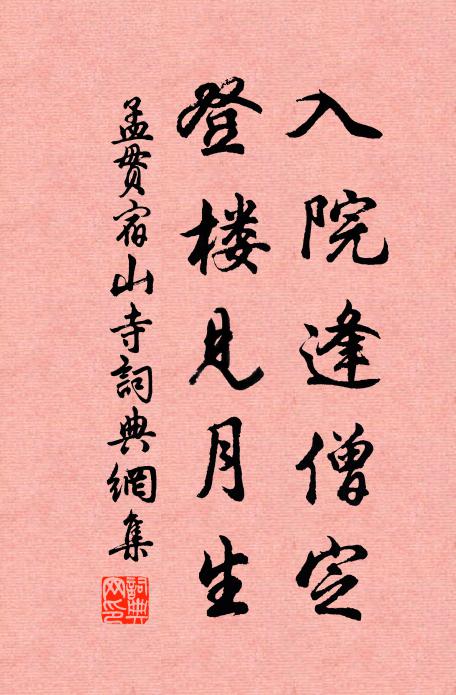 入院逢僧定
登楼见月生
孟贯宿山寺詞典網集
詞典網印